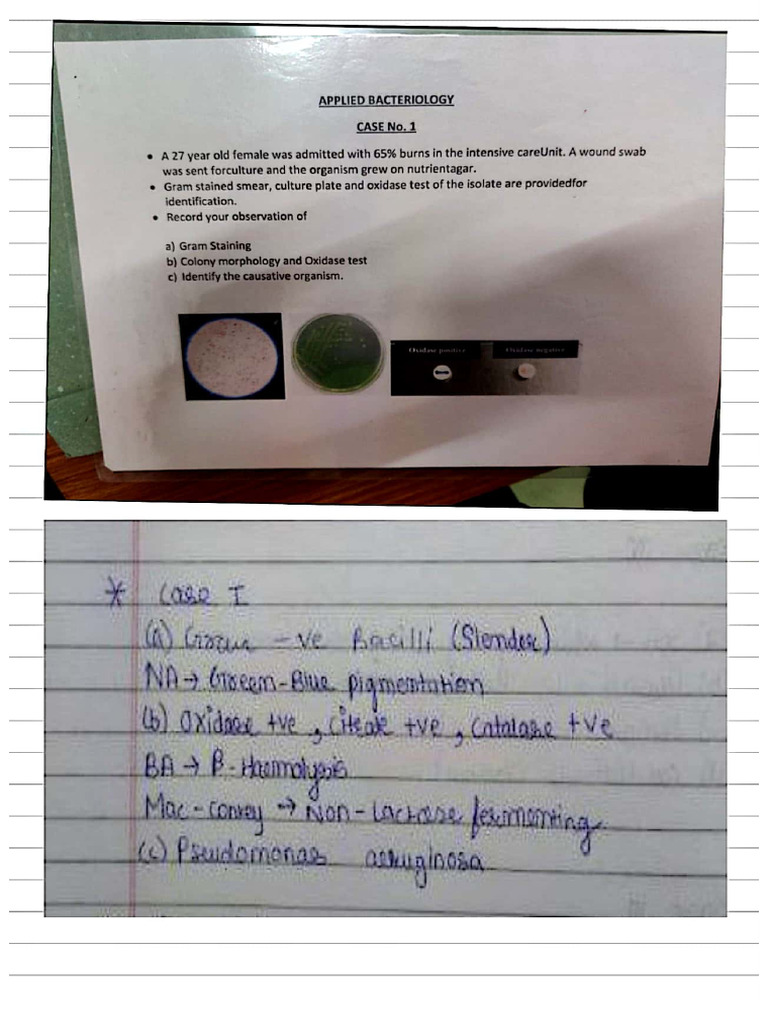 APPLIED BACTERIOLOGY
CASE No. 1
• A 27 year old female was admitted with 65% burns in the intensive careUnit. A wound swab
was sent forculture and the organism grew on nutrientagar.
• Gram stained smear, culture plate and oxidase test of the isolate are providedfor
identification.
• Record your observation of
a) Gram Staining
b) Colony morphology and Oxidase test
c) Identify the causative organism.
Oxidase positive Oxidase negative
* Case I
(a) Gram -ve Bacilli (Slender)
NA → Green-Blue pigmentation
(b) Oxidase +ve, Citrate +ve, Catalase +ve
BA → β-Haemolysis
Mac-conkey → Non-Lactose fermenting
(c) Pseudomonas aeruginosa